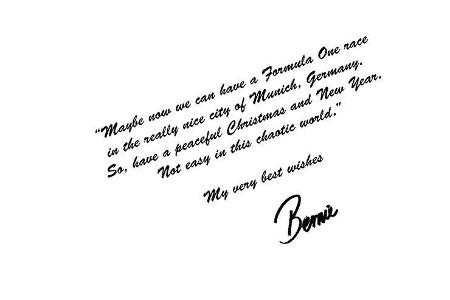 "Maybe now we can have a Formula One race
in the really nice city of Munich, Germany.
So, have a peaceful Christmas and New Year.
Not easy in this chaotic world."
My very best wishes
Bernie